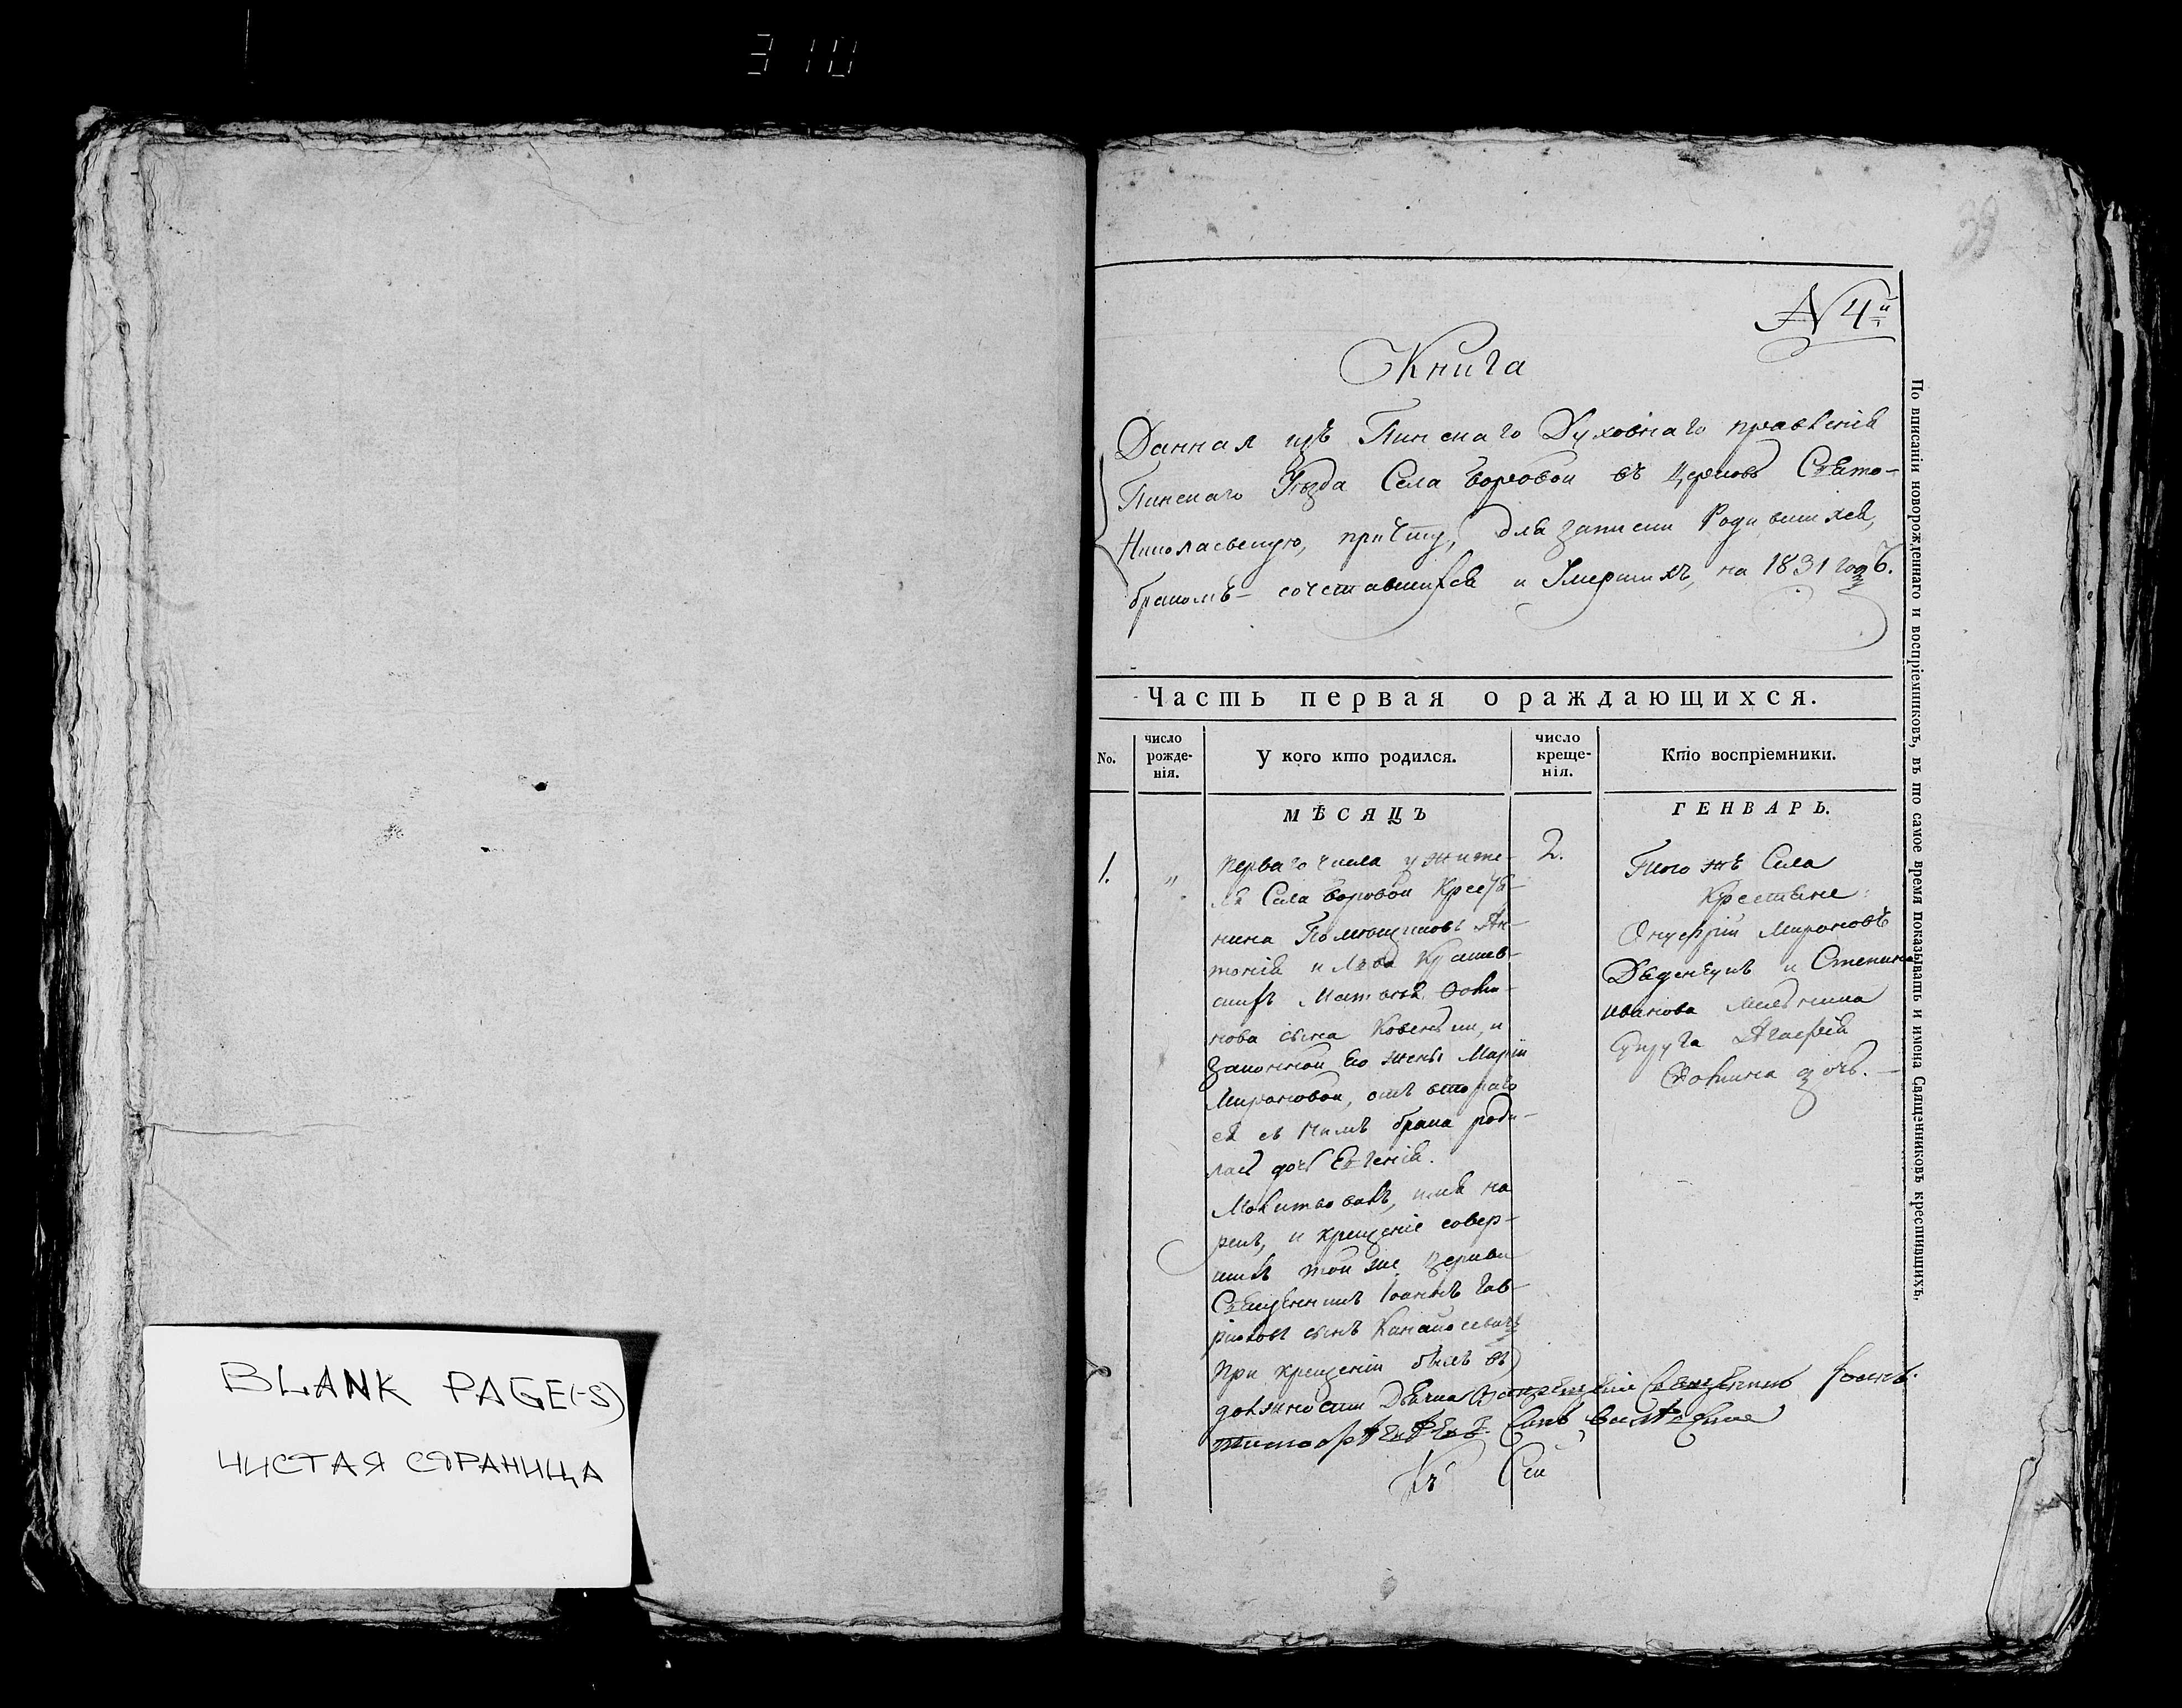 310
39
N 4й
Книга
Данная изъ Пинскаго Духовнаго правленія
Пинскаго Уѣзда Села Боровой въ церковь Свято-
Николаевскую, причту, для записки Родившихся,
бракомъ сочетавшихся и Умершихъ, на 1831 годъ.
Часть первая о раждающихся.
No.
число рожде-нія.
У кого кто родился.
число креще-нія.
Кто воспріемники.
МѢСЯЦЪ
ГЕНВАРЬ.
1.
"
перваго числа у жите-
ля Села Боровой Крестья-
нина Помѣщиковъ Ан-
тонія и
нова сына и
законной Его жены Маріи
Мироновой, отъ втораго
ея съ нимъ брака роди-
лась дочь Евгенія.
Молитвовалъ, имя на
рекъ, и крещеніе совер-
шилъ той же церкви
Священникъ Іоаннъ Гав-
ріиловъ сынъ
При крещеніи былъ въ
должности Дьячка
Къ Сей
2.
Того жъ Села
Крестьяне:
Онуфрій Мироновъ
и
Иванова Мельника
супруга Агафія
дочь.
По вписаніи новорожденнаго и воспріемниковъ, въ то самое время показывать и имена Священниковъ крестившихъ.
BLANK PAGE(-S)
ЧИСТАЯ СТРАНИЦА